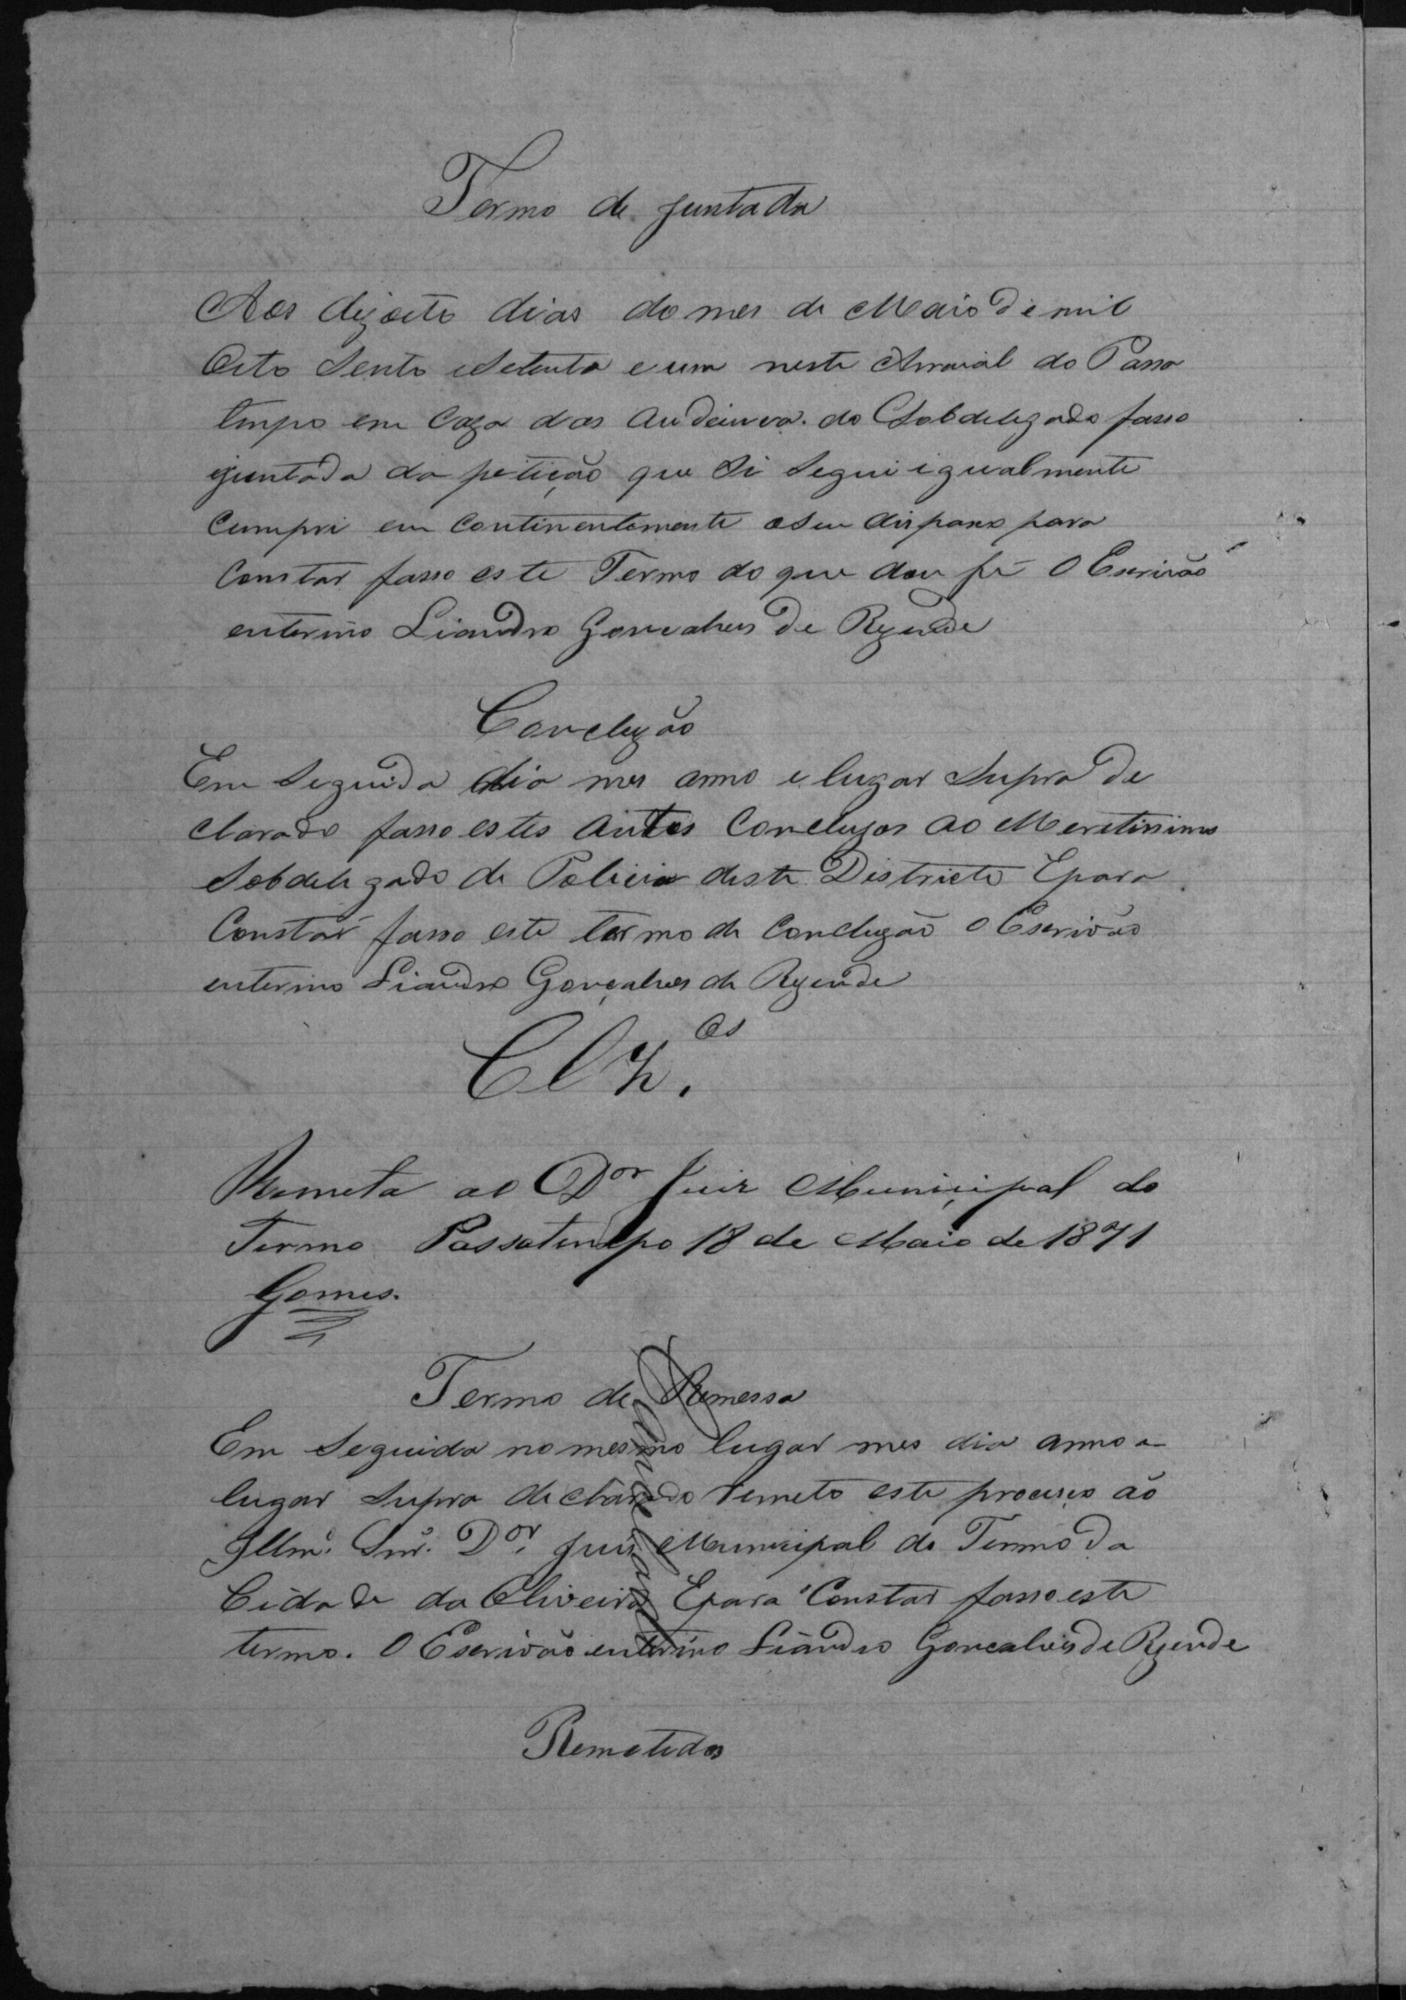 Termo de juntada
Aos dizoito dias do mes de Maio de mil
Oito Sento eSetenta e um neste Arraial do Passa
tempo em Caza das Audiencia. do Sobdelegado fasso
ajuntada da petição que Si Segui igualmente
Cumpri em Continentemente oSeu dispaxo para
Constar fasso este Termo do que dou fé O Escrivão
enterino Liandro Goncalves de Rezende
Concluzão
Em Seguida dia mes anno e lugar Supra de
clarado fasso estes Autos Concluzos ao Meretissimo
Sobdelegado de Policia deste Districto Epara
Constar fasso este termo de Concluzão o Escrivão
enterino Liandro Gonçalves de Rezende
Clz.os
Remeta ao Dor Juiz Municipal do
Termo Passatempo 18 de Maio de 1871
Gomes.
Termo de Remessa
Em Seguida no mesmo lugar mes dia anno e
lugar Supra declarado remeto este processo áo
Illmo. Snr. Dor. Juiz Municipal do Termo da
Cidade da Oliveira Epara Constar fasso este
termo. O Escrivão enterino Liandro Goncalves de Rezende
Remetidos